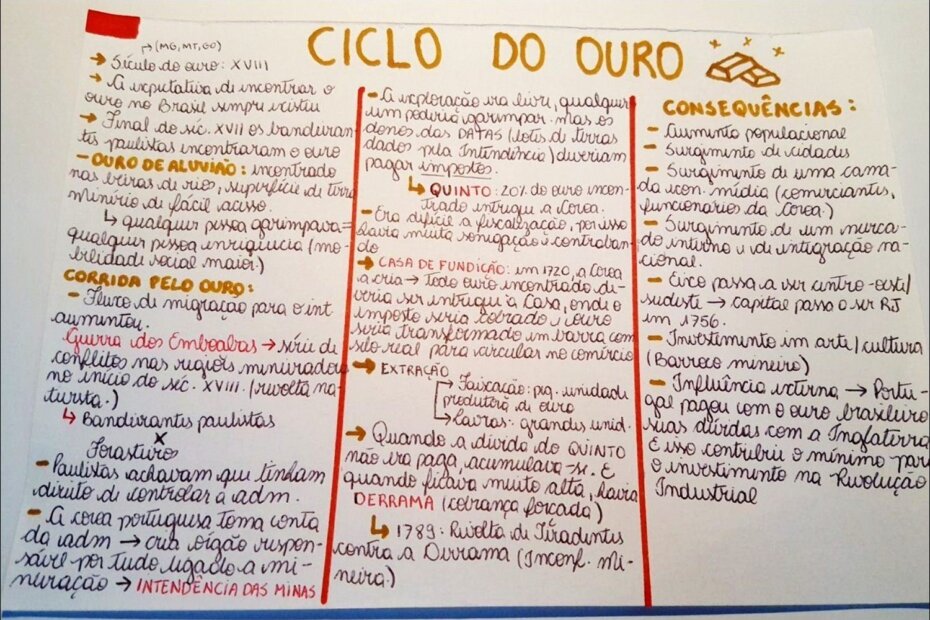 CICLO DO OURO
(MG, MT, GO)
→ Século do ouro: XVIII
→ A expectativa de encontrar o
ouro no Brasil sempre existiu
→ Final do séc. XVII os bandeiran-
tes paulistas encontraram o ouro
- OURO DE ALUVIÃO: encontrado
nas beiras de rios, superfície de terra
Minério de fácil acesso.
↳ qualquer pessoa garimpava =
qualquer pessoa enriquecia (mo-
bilidade social maior.)
CORRIDA PELO OURO:
- Fluxo de migração para o int
aumentou.
Guerra dos Emboabas → série de
conflitos nas regiões mineradoras
no início do séc. XVIII. (revolta na-
tivista.)
↳ Bandeirantes paulistas
x
Forasteiros
- Paulistas achavam que tinham
direito de controlar a adm.
- A coroa portuguesa toma conta
da adm → cria órgão respon-
sável por tudo ligado a mi-
neração → INTENDÊNCIA DAS MINAS
- A exploração era livre, qualquer
um poderia garimpar. mas os
donos das DATAS (lotes de terras
dados pela Intendência) deveriam
pagar impostos.
↳ QUINTO: 20% do ouro encon-
trado entregue a Coroa.
- Era difícil a fiscalização, por isso
havia muita sonegação e contraban-
do
→ CASA DE FUNDIÇÃO: em 1720, a Coroa
a cria → Todo ouro encontrado de-
veria ser entregue à Casa, onde o
imposto seria cobrado e ouro
seria transformado em barra com
selo real para circular no comércio
→ EXTRAÇÃO
→ Faiscação: peq. unidade
produtora de ouro
→ Lavras: grandes unid.
→ Quando a dívida do QUINTO
não era paga, acumulava-se. E
quando ficava muito alta, havia
DERRAMA (cobrança forçada)
↳ 1789: Revolta de Tiradentes
contra a Derrama (Inconf. Mi-
neira.)
CONSEQUÊNCIAS:
- Aumento populacional
- Surgimento de cidades
- Surgimento de uma cama-
da econ. média (comerciantes,
funcionários da Coroa.)
- Surgimento de um merca-
do interno e de integração na-
cional.
- Eixo passa a ser centro-oeste/
sudeste → capital passa a ser RJ
em 1756.
- Investimento em arte/cultura
(Barroco mineiro)
- Influência externa → Portu-
gal pagou com o ouro brasileiro
suas dívidas com a Inglaterra
E isso contribuiu o mínimo para
o investimento na Revolução
Industrial